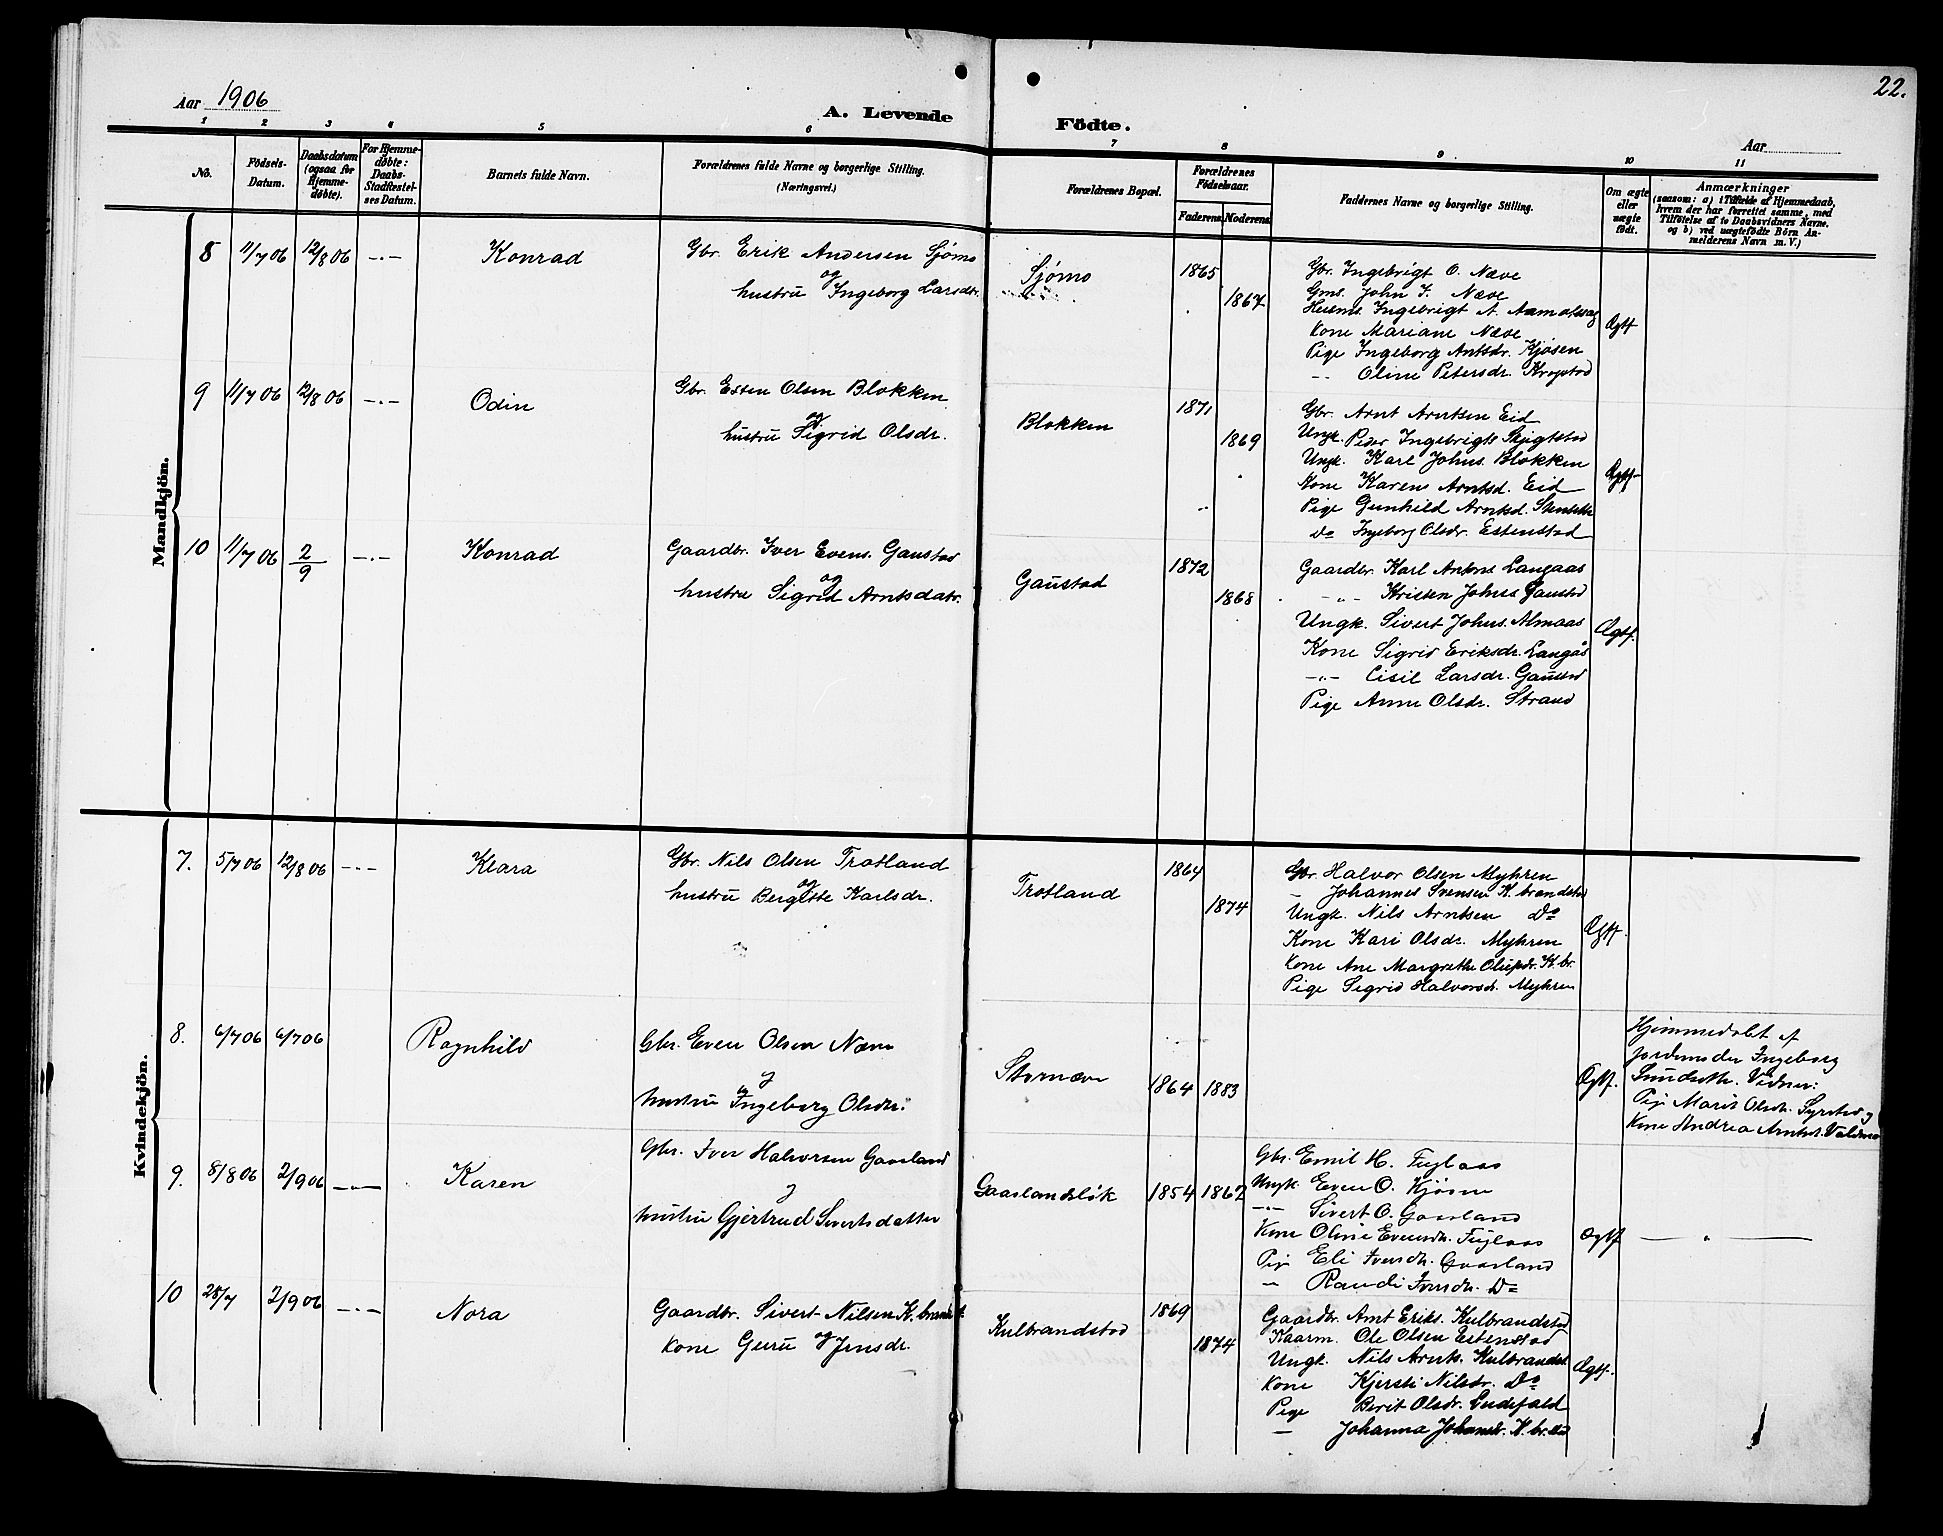 22.
Aar 1906
A. Levende Födte.
Aar
1 2 3 4 5 6 7 8 9 10 11
No.
Födsels-Datum.
Daabsdatum (ogsaa for Hjemme-døbte).
For Hjemme-døbte: Daabs-Stadfæstel-ses Datum.
Barnets fulde Navn.
Forældrenes fulde Navne og borgerlige Stilling. (Næringsvei.)
Forældrenes Bopæl.
Forældrenes Födselsaar.
Faderens. Moderens.
Faddernes Navne og borgerlige Stilling.
Om ægte eller uægte født.
Anmærkninger
(saasom: a) i Tilfælde af Hjemmedaab,
hvem der har forrettet samme, med
Tilføielse af to Daabsvidners Navne,
og b) ved uægtefödte Börn An-
melderens Navn m. V.)
Mandkjön.
8 11/7 06 12/8 06 -"- Konrad
Gbr. Erik Andersen Sjømo
og
hustru Ingeborg Larsdtr.
Sjømo
1865
1867
Gbr. Ingebrigt O. Næve
Gms. John I. Næve
Ingebrigt A.
Kone Mariane Næve
Pige Ingeborg Antsdr. Kjøsen
-- Oline Petersdr. Kropstad
Ægtf
9 11/7 06 12/8 06 -"- Odin
Gbr. Esten Olsen Blokken
og
hustru Sigrid Olsdr.
Blokken
1871
1869
Gbr. Arnt Arntsen Eid
Ungk. Peder Ingebrigts.
Ungk. Karl Johns. Blokken
Kone Karens Arntsd. Eid
Pige Gunhild Arntsd.
Do Ingeborg Olsdr. Estenstad
Ægtf.
10 11/7 06 2/9 -"- Konrad
Gaardbr. Iver Evens. Gaustad
og
hustru Sigrid Arntsdatr.
Gaustad
1872
1868
Gaardbr. Karl Antons Langaas
-"- Kristen Johns Gaustad
Ungk. Sivert Johns. Almaas
Kone Sigrid Eriksdr. Langås
-"- Cisil Larsdr. Gaustad
Pige Anne Olsdr. Strand
Ægtf.
Kvindekjön.
7. 5/7 06 12/8 06 -"- Klara
Gbr. Nils Olsen Trotland
og
hustru Bergitte Karlsdr.
Trotland
1864
1874
Gbr. Halvor Olsen Myhren
- Johannes Svensen K.brandstad
Ungk. Nils Arntsen Do
Kone Kari Olsdr. Myhren
Kone Ane Margrethe Olufsdr. K.br.
Pige Sigrid Halvorsdr. Myhren
Ægtf.
8. 6/7 06 6/7 06 Ragnhild
Gbr. Even Olsen Næve
og
hustru Ingeborg Olsdr.
Stornæve
1864 1883
Ægtf.
Hjemmedøbt af
Jordmoder Ingeborg
Vidner:
Pige Marit Olsdr. Syrstad og
Kone Andrea Arntsd.
9. 8/8 06 2/9 06 -"- Karen
Gbr. Iver Halvorsen Gaasland
og
hustru Gjertrud Sivertsdatter
Gaaslandsløk
1854 1862
Gbr. Emil H. Fuglaas
Ungk. Even O. Kjøsen
-"- Sivert O. Gaasland
Kone Oline Evensdr. Fuglaas
Pige Eli Iversdr. Gaasland
-"- Randi Iversdr. Do
Ægtf -"-
10 28/7 2/9 06 -"- Nora
Gaardbr. Sivert Nilsen K.brandst.
og
Kone Guru Jensdr.
Kulbrandstad
1869
1874
Gaardbr. Arnt Eriks. Kulbrandstad
Kaarm. Ole Olsen Estenstad
Ungk. Nils Arnts. Kulbrandst.
Kone Kjersti Nilsdr. Do
Pige Berit Olsdr. Ludefald
- Johanna Johansdr. K.br.std
Ægtf.